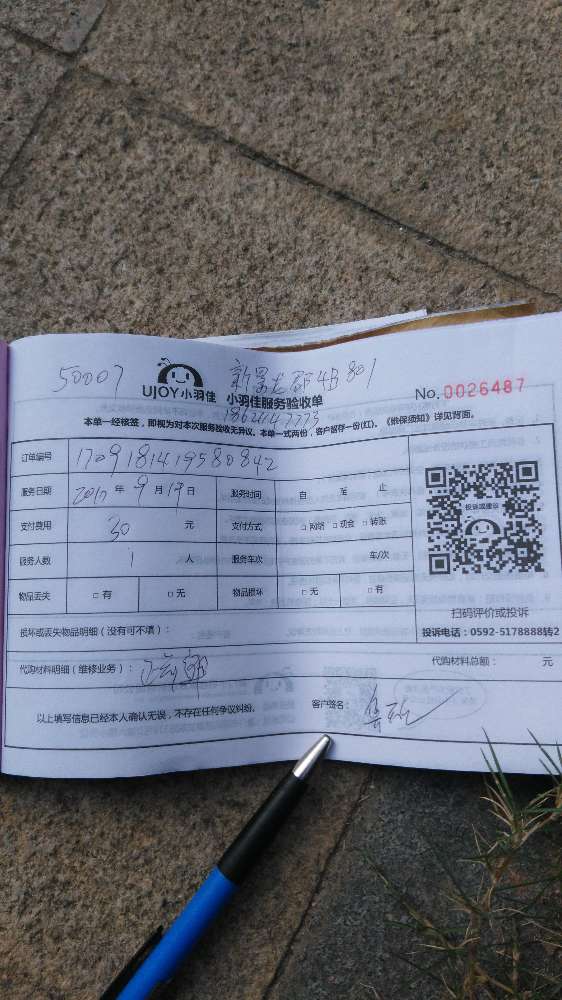 50007
UJOY小羽佳 小羽佳服务验收单
No.0026487
本单一经核签，即视为对本次服务验收无异议。本单一式两份，客户留存一份(红)。《维保须知》详见背面。
订单编号 170918141958084 2
服务日期 2017年9月19日 服务时间 自 至 止
支付费用 30 元 支付方式 □网络 □现金 □转账
服务人数 1 人 服务车次 车/次
物品丢失 □有 □无 物品损坏 □无 □有
投诉或建议
扫码评价或投诉
投诉电话：0592-5178888转2
损坏或丢失物品明细（没有可不填）：
代购材料明细（维修业务）： 代购材料总额： 元
以上填写信息已经本人确认无误，不存在任何争议纠纷。 客户签名：